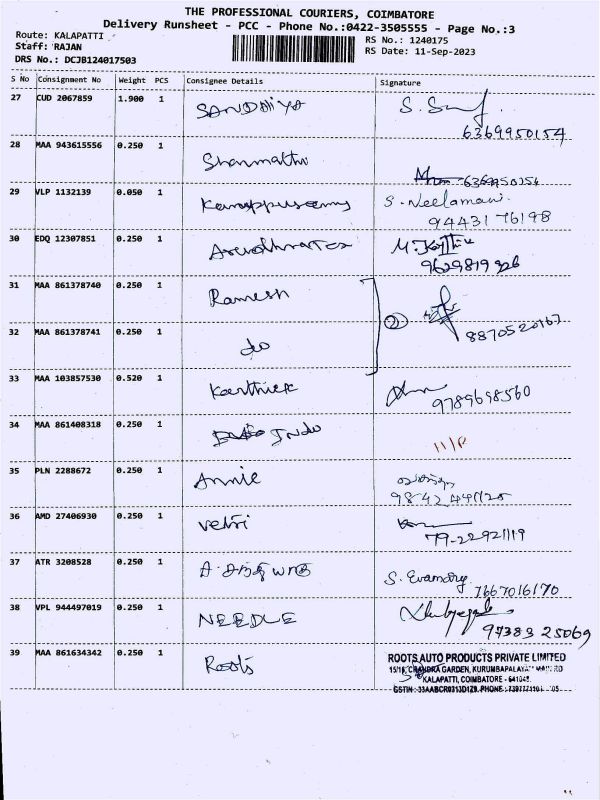 THE PROFESSIONAL COURIERS, COIMBATORE
Delivery Runsheet - PCC - Phone No.:0422-3505555 - Page No.:3
Route: KALAPATTI
RS No.: 1240175
Staff: RAJAN
RS Date: 11-Sep-2023
DRS No.: DCJB124017503
S No Consignment No Weight PCS Consignee Details Signature
27 CUD 2067859 1.900 1 SANDDHIYA
6369950154
28 MAA 943615556 0.250 1 Shanmathi
6369950154
29 VLP 1132139 0.050 1 Karuppusamy S. Neelamani
9443176198
30 EDQ 12307851 0.250 1
9629819326
31 MAA 861378740 0.250 1 Ramesh
2
8870520167
32 MAA 861378741 0.250 1 do
33 MAA 103857530 0.520 1 Karthick
9789698560
34 MAA 861408318 0.250 1 Indo
35 PLN 2288672 0.250 1 Annie
9842441125
36 AMD 27406930 0.250 1 Vetri
79-22921119
37 ATR 3208528 0.250 1
S. Evamary
7667016170
38 VPL 944497019 0.250 1 NEEDLE
97389 25069
39 MAA 861634342 0.250 1 Roots
ROOTS AUTO PRODUCTS PRIVATE LIMITED
GARDEN, KURUMBAPALAYAM
KALAPATTI, COIMBATORE - 641048.